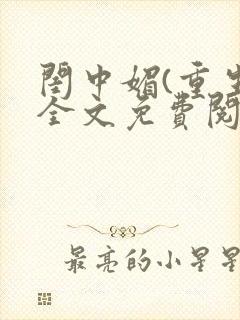 閨中媚(重生
全文免費閱
最亮的小星星